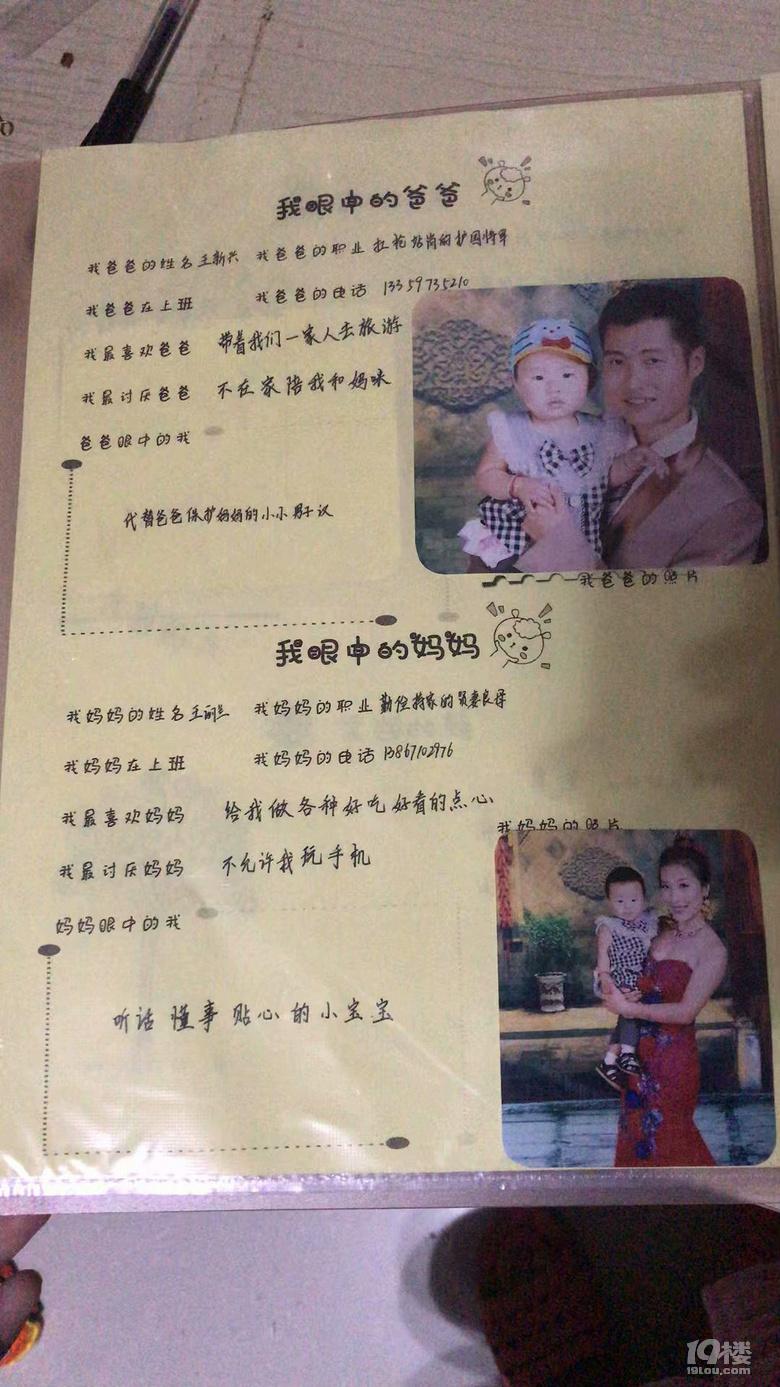 我眼中的爸爸
我爸爸的姓名王新兴 我爸爸的职业扛枪站岗的护国将军
我爸爸在上班 我爸爸的电话 13359735210
我最喜欢爸爸 带着我们一家人去旅游
我最讨厌爸爸 不在家陪我和妈咪
爸爸眼中的我
代替爸爸保护妈妈的小小男子汉
我爸爸的照片
我眼中的妈妈
我妈妈的姓名王丽兰 我妈妈的职业勤俭持家的贤妻良母
我妈妈在上班 我妈妈的电话 13867102976
我最喜欢妈妈 给我做各种好吃好看的点心
我妈妈的照片
我最讨厌妈妈 不允许我玩手机
妈妈眼中的我
听话 懂事 贴心的小宝宝
19楼
19lou.com